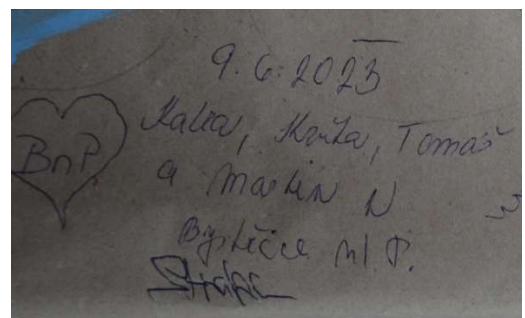 9.6.2023
BnP
Katka, Tomáš
a Martin N
Bystřice n/P.